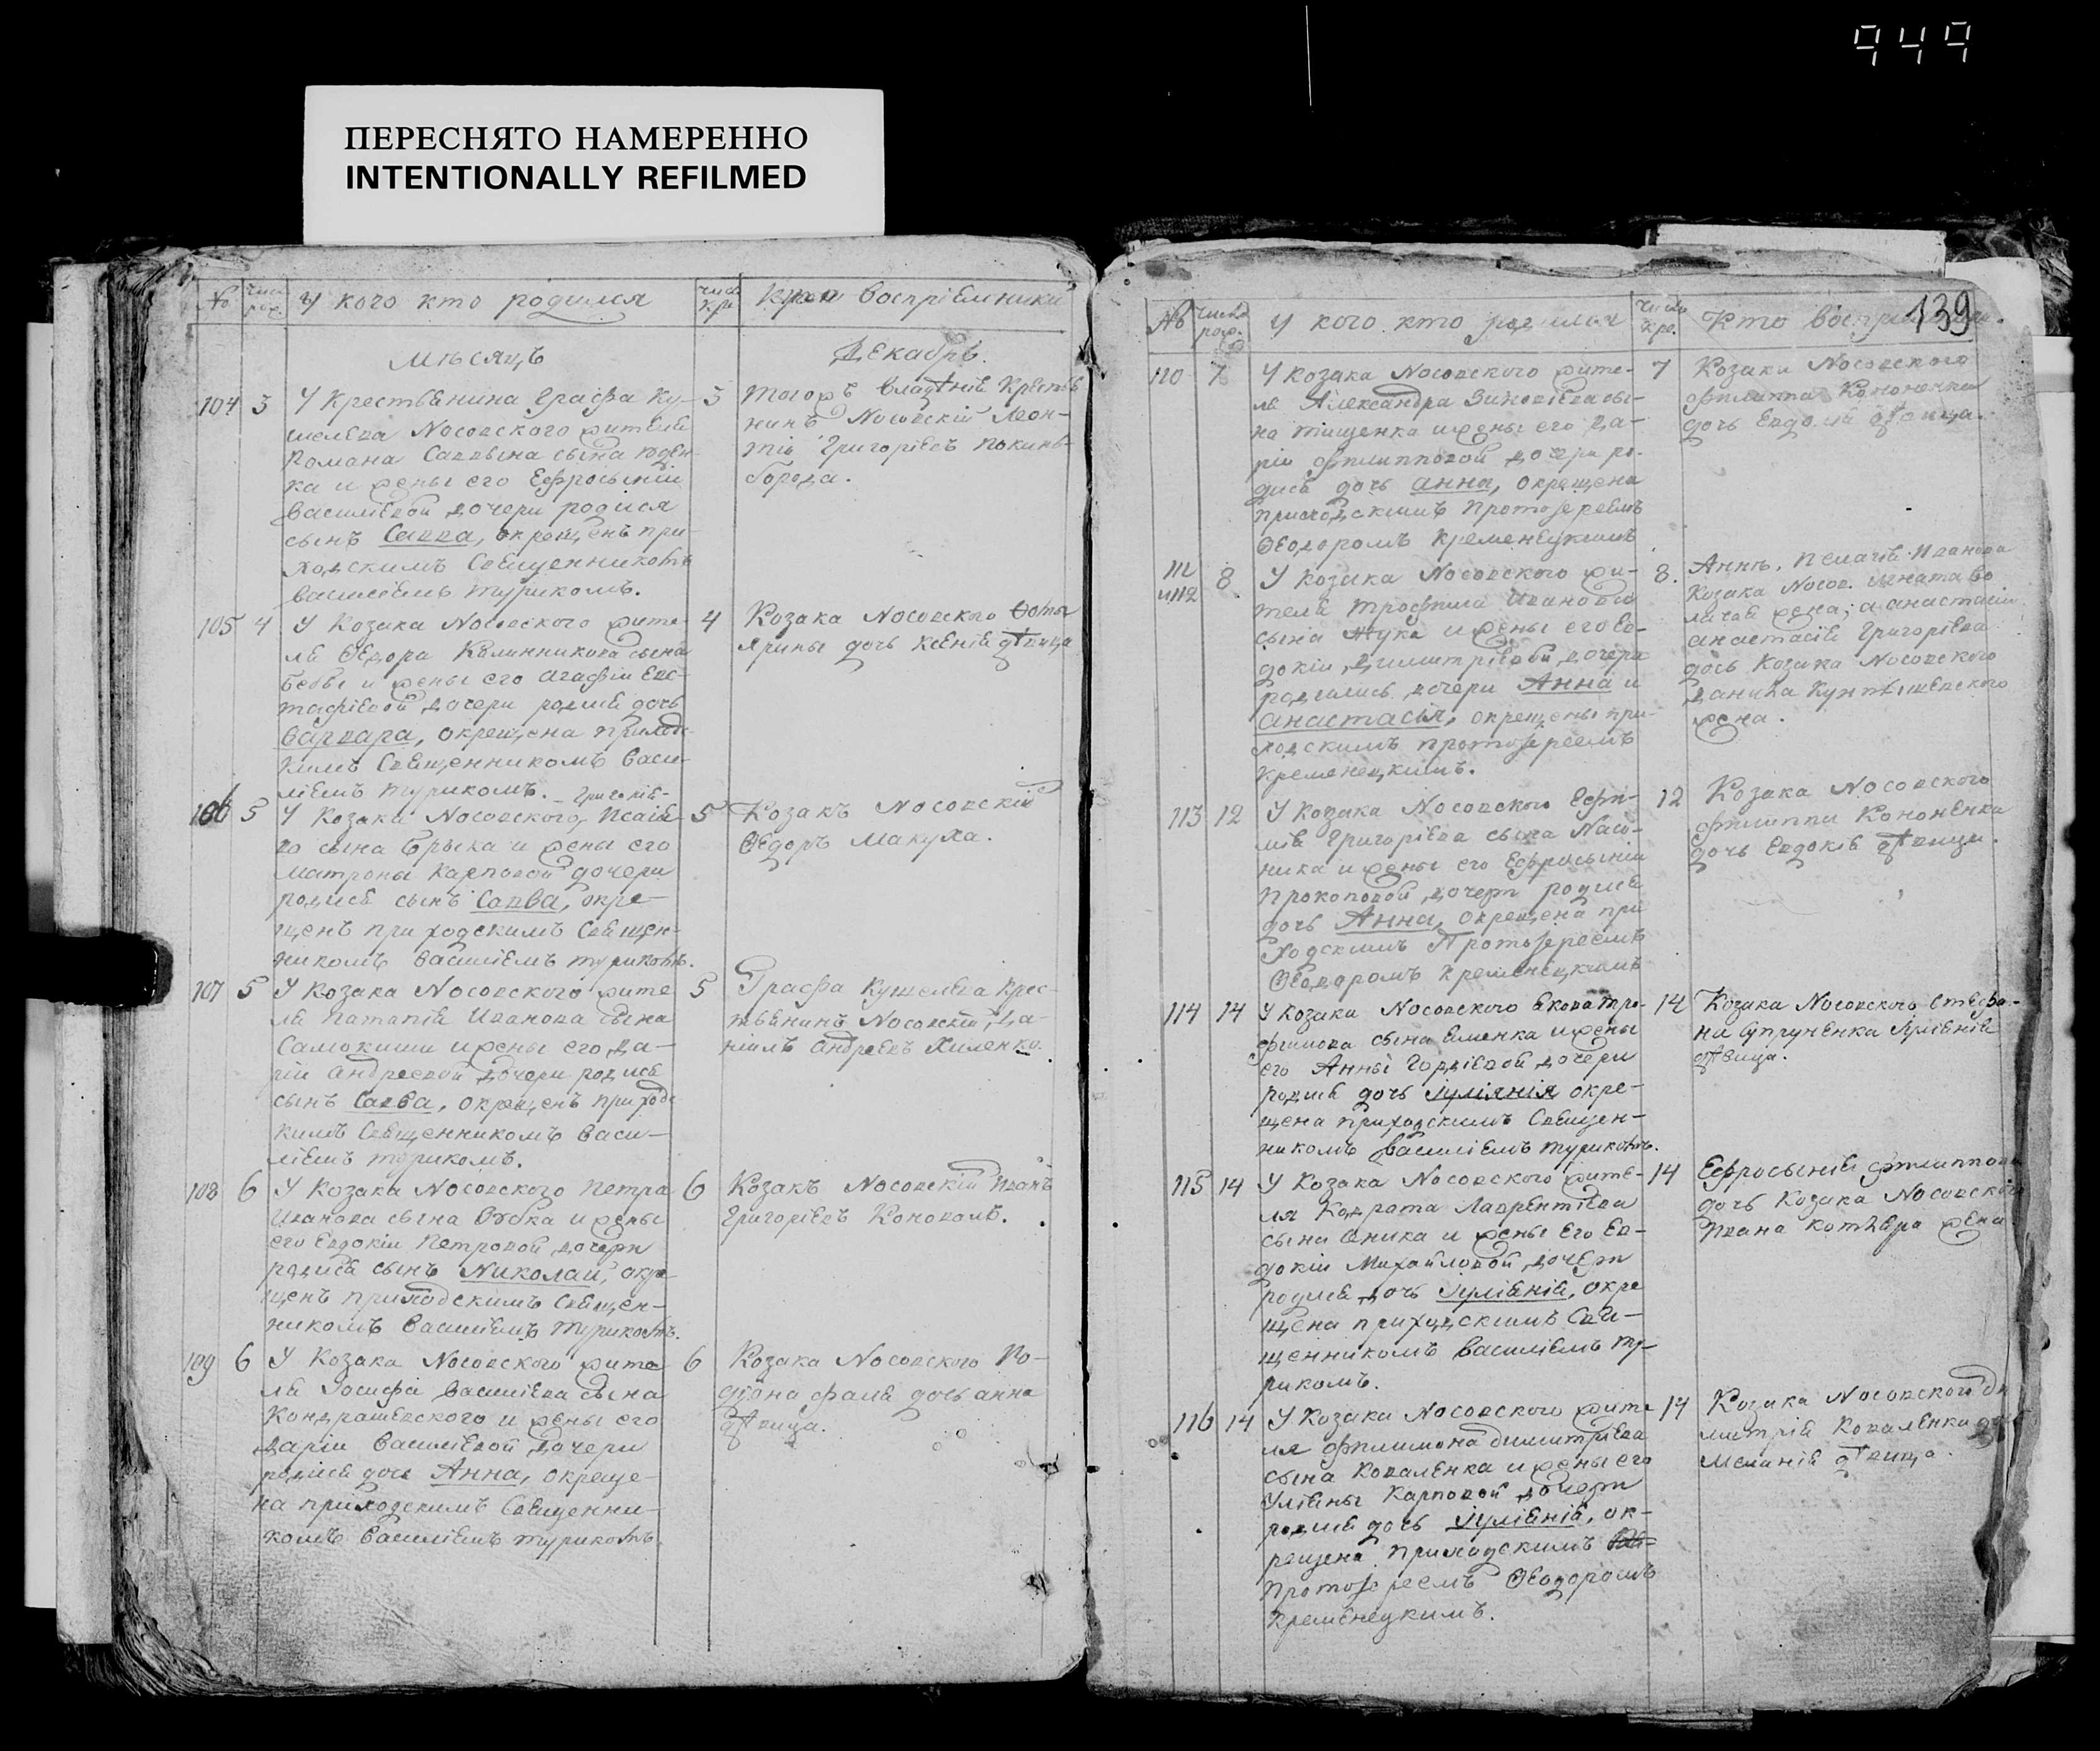 949
ПЕРЕСНЯТО НАМЕРЕННО
INTENTIONALLY REFILMED
№ числ. рож. У кого кто родился числ. кр. Кто воспріемники
Мѣсяцъ Декабрь.
104 3 У Крестьянина Графа Ку-
шелева Носовского жителя
Романа Саввина сына
ка и жены его Ефросиніи
Василіевой дочери родился
сынъ Савва, окрещенъ при
ходскимъ Священникомъ
Василіемъ Турикомъ.
3 Тогожъ владѣнія Крестья
нинъ Носовскій Леон-
тій Григоріевъ
борода.
105 4 У Козака Носовского жите-
ля Ѳедора Калинникова сына
и жены его Агафіи Евс-
тафіевой дочери родила дочь
Варвара, окрещена приходс-
кимъ Священникомъ Васи-
ліемъ Турикомъ.
4 Козака Носовского
Ярины дочь Ксенія дѣвица
106 5 У Козака Носовского Григоріе-
Исаіе
во сына Брыка и жены его
Матроны Карповой дочери
родися сынъ Савва, окре-
щенъ приходскимъ Священ-
никомъ Василіемъ Турикомъ.
5 Козакъ Носовскій
Ѳедоръ Макуха.
107 5 У Козака Носовского жите
ля Патапія Иванова сына
Самокиши и жены его Да-
ріи Андреевой дочери родися
сынъ Савва, окрещенъ приходс
кимъ Священникомъ Васи-
ліемъ Турикомъ.
5 Графа Кушелева Крес-
тьянинъ Носовскій, Да-
ніилъ Андреевъ Хиленко.
108 6 У Козака Носовского Петра
Иванова сына и жены
его Евдокіи Петровой дочери
родися сынъ Николай, окре-
щенъ приходскимъ Священ-
никомъ Василіемъ Турикомъ.
6 Козакъ Носовскій Иванъ
Григоріевъ Коновалъ.
109 6 У Козака Носовского жите
ля Іосифа Василіева сына
Кондрашевского и жены его
Даріи Василіевой дочери
родися дочь Анна, окреще-
на приходскимъ Священни-
комъ Василіемъ Турикомъ.
6 Козака Носовского Ро-
діона дочь Анна
дѣвица.
139
№ числа рож. У кого кто родился числа кре. Кто воспріемник.
110 7 У Козака Носовского жите-
ля Александра Зиновіева сы-
на Тищенка и жены его Да-
ріи Филипповой дочери ро-
дися дочь Анна, окрещена
приходскимъ Протоіереемъ
Ѳеодоромъ Кременецкимъ
7 Козака Носовского
Филиппа Кононенка
дочь Евдокія дѣвица.
111 и 112 8 У Козака Носовского жи-
теля Трофима Иванова
сына Жука и жены его Ев-
докіи Димитріевой дочери
родились дочери Анна и
Анастасія, окрещены при-
ходскимъ Протоіереемъ
Кременецкимъ.
8. Аннѣ, Пелагія Иванова
Козака Носов. Игната
жена; а Анастасіи
Анастасія Григоріева
дочь Козака Носовского
Данила
жена.
113 12 У Козака Носовского Ефи-
мія Григоріева сына Насо-
ника и жены его Ефросиніи
Прокоповой дочери родися
дочь Анна, окрещена при
ходскимъ Протоіереемъ
Ѳеодоромъ Кременецкимъ
12 Козака Носовского
Филиппа Кононенка
дочь Евдокія дѣвица.
114 14 У Козака Носовского Якова Тро-
фимова сына и жены
его Анны Гордіевой дочери
родися дочь Іуліянія окре-
щена приходскимъ Священ-
никомъ Василіемъ Турикомъ.
14 Козака Носовского Стефа-
на Супруненка Іуліянія
дѣвица.
115 14 У Козака Носовского жите-
ля Кодрата Лаврентіева
сына и жены его Ев-
докіи Михайловой дочери
родися дочь Іуліянія, окре
щена приходскимъ Свя-
щенникомъ Василіемъ Ту-
рикомъ.
14 Ефросинія Филиппова
дочь Козака Носовского
Ивана жена
116 14 У Козака Носовского жите
ля Филимона Димитріева
сына Коваленка и жены его
Уліяны Карповой дочери
родися дочь Іуліянія, ок-
рещена приходскимъ
Протоіереемъ Ѳеодоромъ
Кременецкимъ.
14 Козака Носовского Ди
митрія Коваленка
Меланія дѣвица.